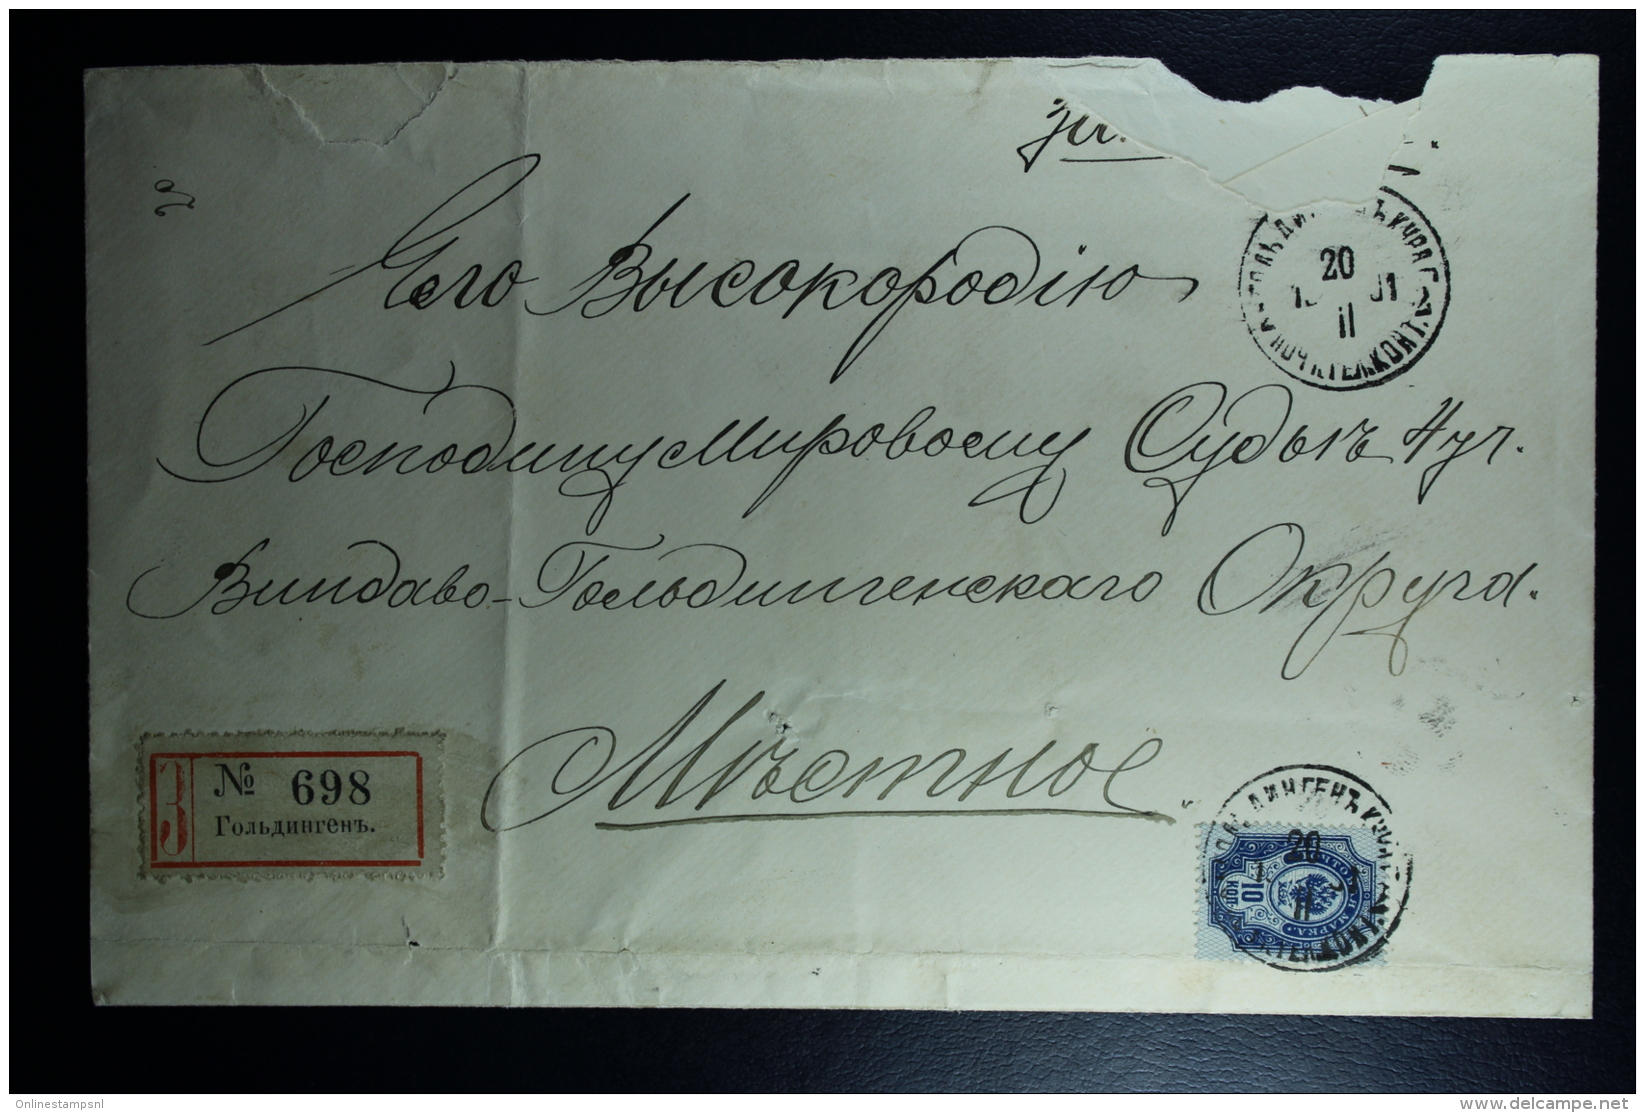 зп.
Его Высокородію
Господину Мировому Судьѣ 4 уч.
Виндаво-Гольдингенскаго Округа.
Мѣстное
ГОЛЬДИНГЕНЪ КУРЛ. Г.
20
II
ПОЧТ. ТЕЛ. КОНТ.
З
№ 698
Гольдингенъ.
ГОЛЬДИНГЕНЪ КУРЛ.
20
II
ТЕЛ. КОНТ.
10
КОП
МАРКА
Onlinestampsnl
www.delcampe.net